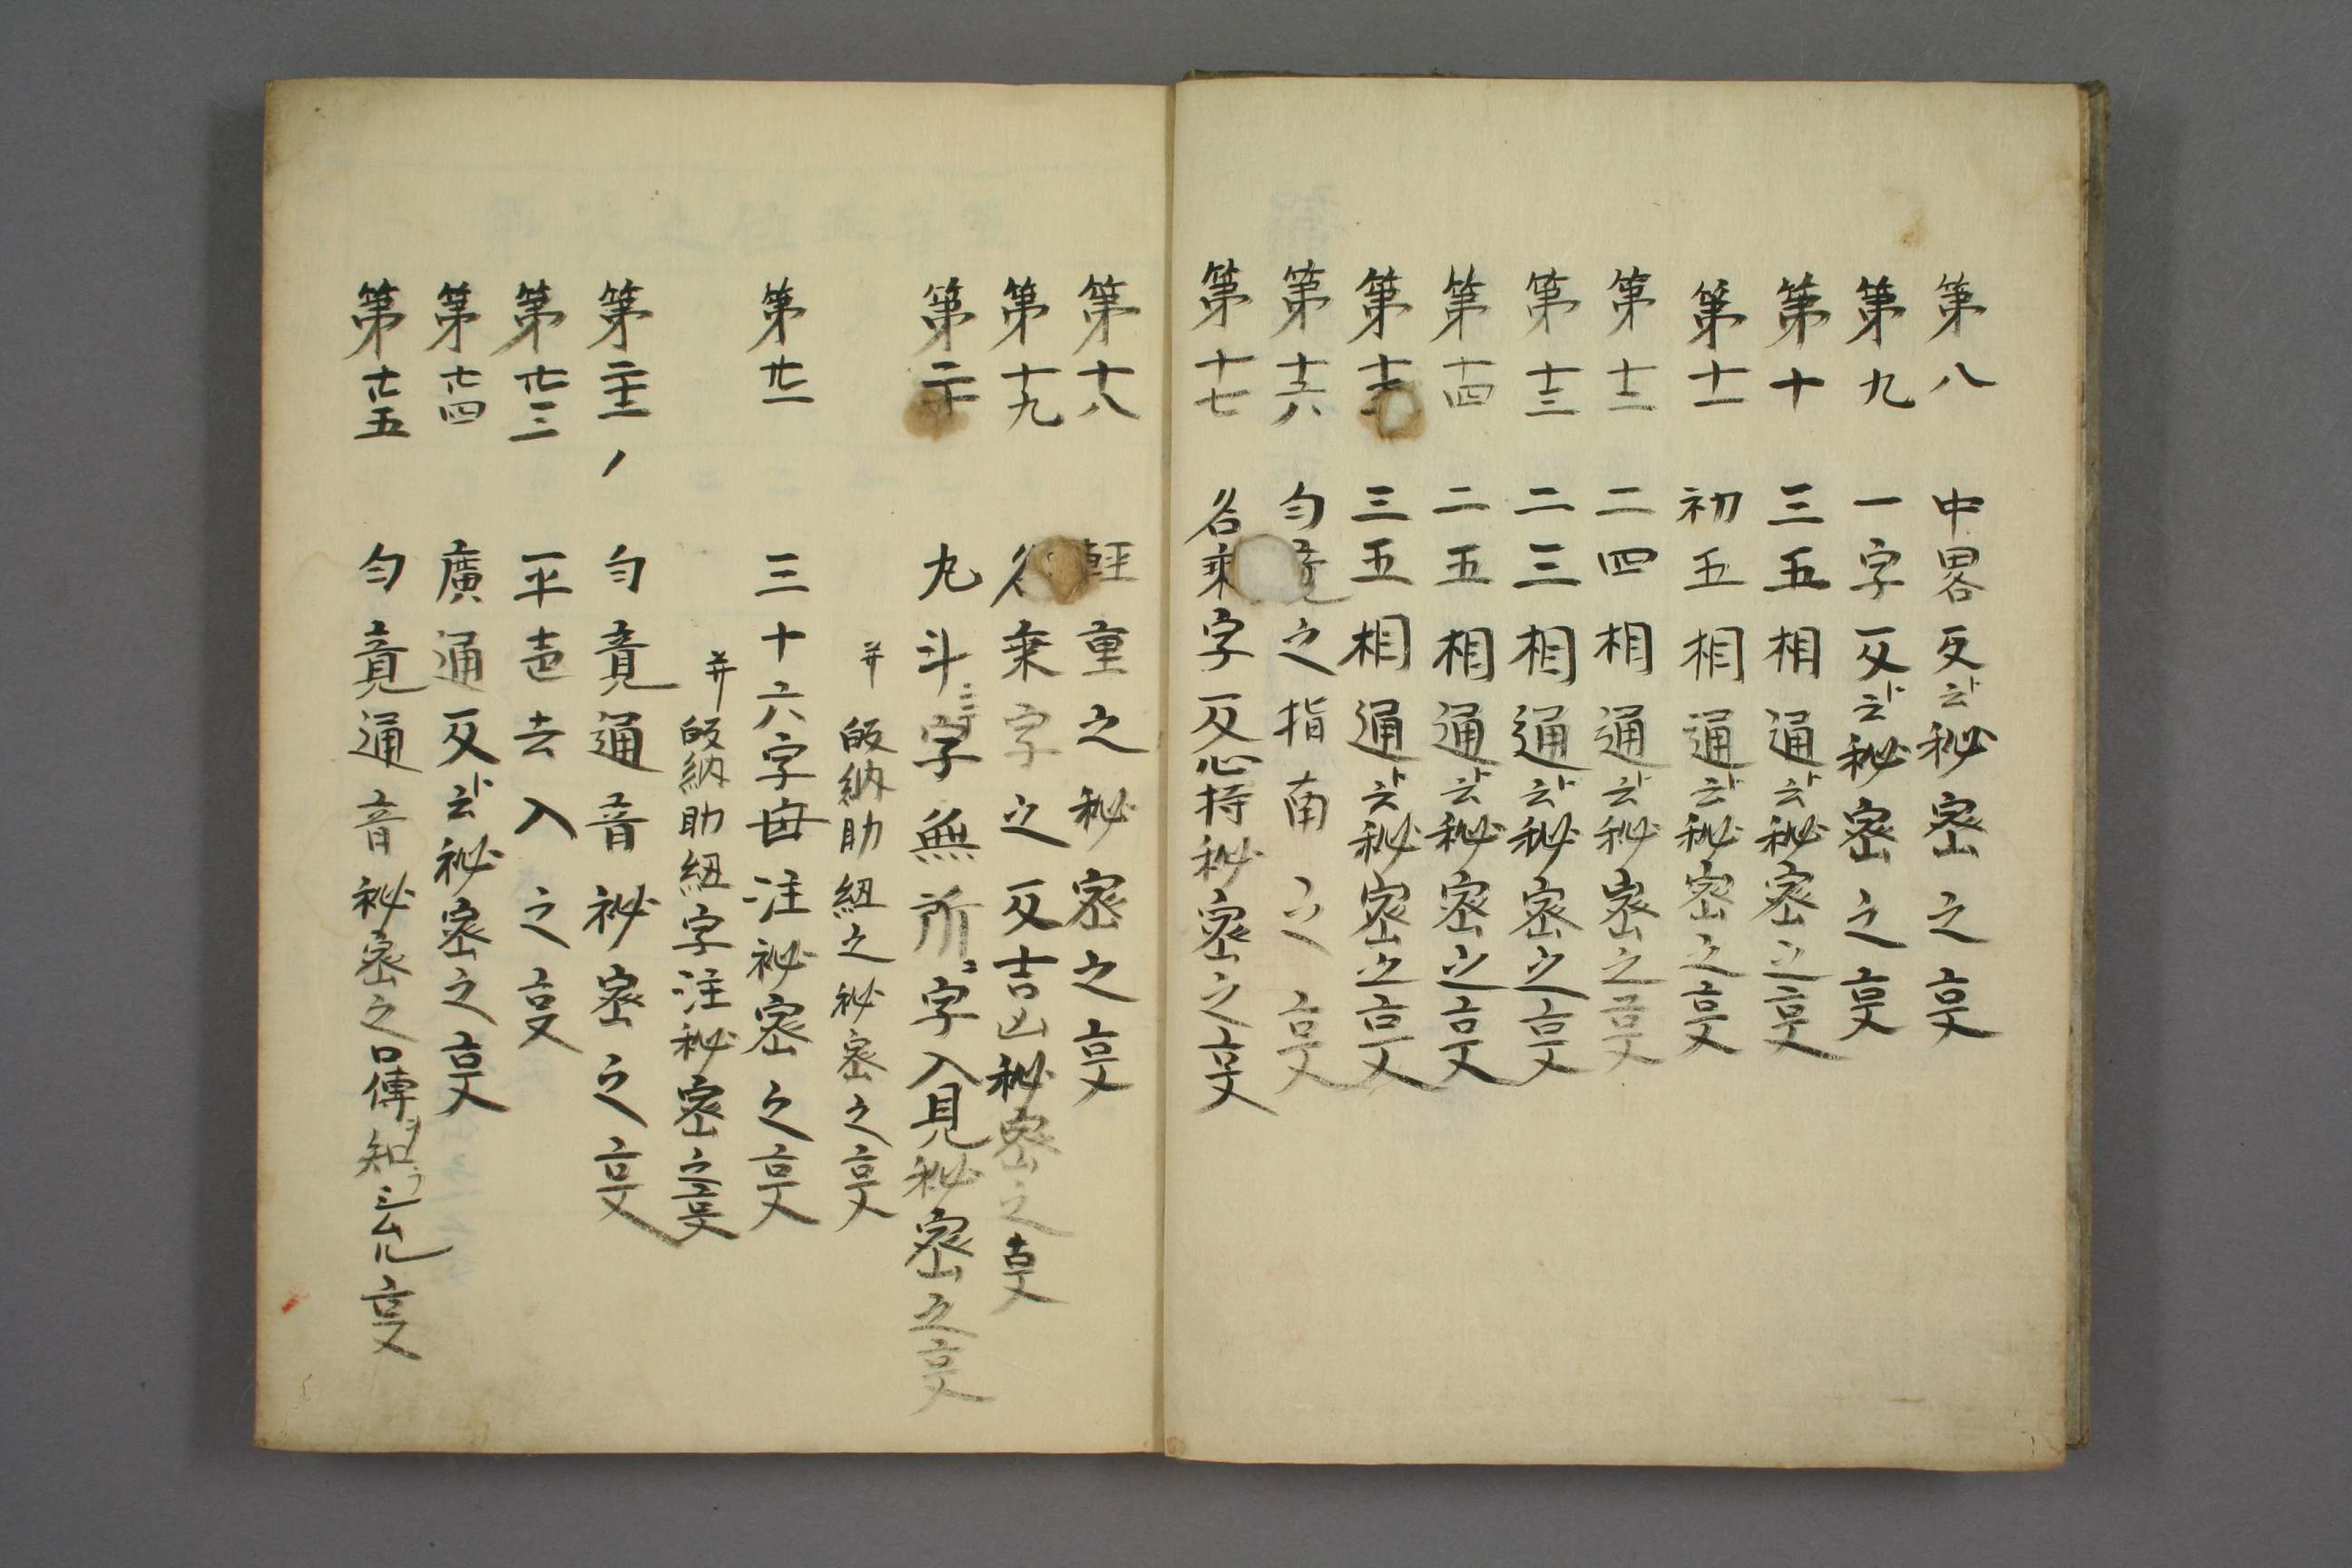 第八 中畧反ト云秘密之㕝
第九 一字反ト云秘密之㕝
第十 三五相通ト云秘密之㕝
第十一 初五相通ト云秘密之㕝
第十二 二四相通ト云秘密之㕝
第十三 二三相通ト云秘密之㕝
第十四 二五相通ト云秘密之㕝
第十 三五相通ト云秘密之㕝
第十六 匀之指南之㕝
第十七 名乗字反心持秘密之㕝
第十八 軽重之秘密之㕝
第十九 乗字之反吉凶秘密之㕝
第二十 九斗字無所字入見秘密之㕝
并 皈納助紐之秘密之㕝
第廿一 三十六字母注秘密之㕝
并皈納助紐字注秘密之㕝
第二十二 匀竟通音秘密之㕝
第廿三 平去入之㕝
第廿四 廣通反ト云秘密之㕝
第廿五 匀竟通音秘密之口傳知㕝